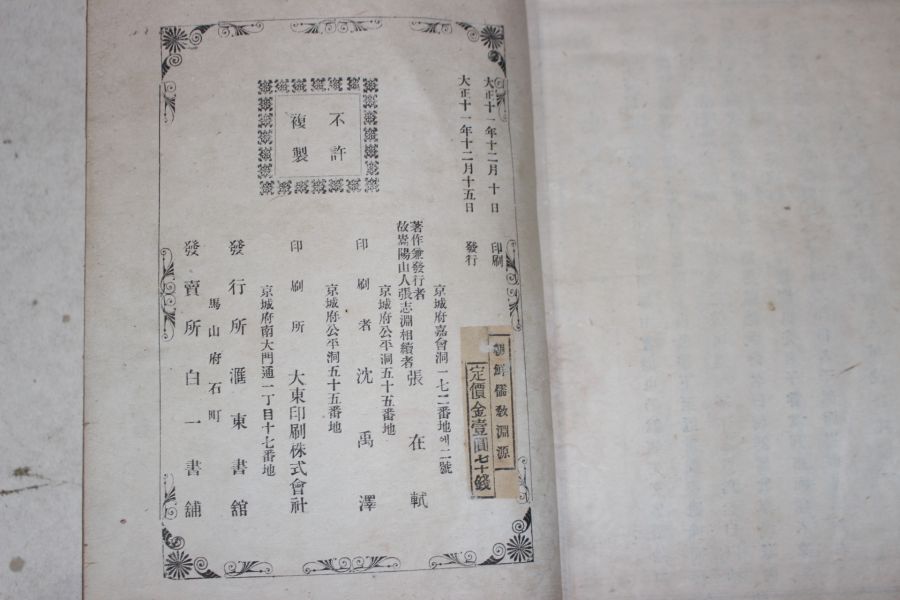 大正十一年十二月十日 印刷
大正十一年十二月十五日 發行
朝鮮儒教淵源
定價金壹圓七十錢
不許
複製
京城府嘉會洞一七二番地에二號
著作兼發行者
故嵩陽山人張志淵相續者 張在軾
京城府公平洞五十五番地
印刷者 沈禹澤
京城府公平洞五十五番地
印刷所 大東印刷株式會社
京城府南大門通一丁目十七番地
發行所 滙東書館
馬山府石町
發賣所 白一書舖